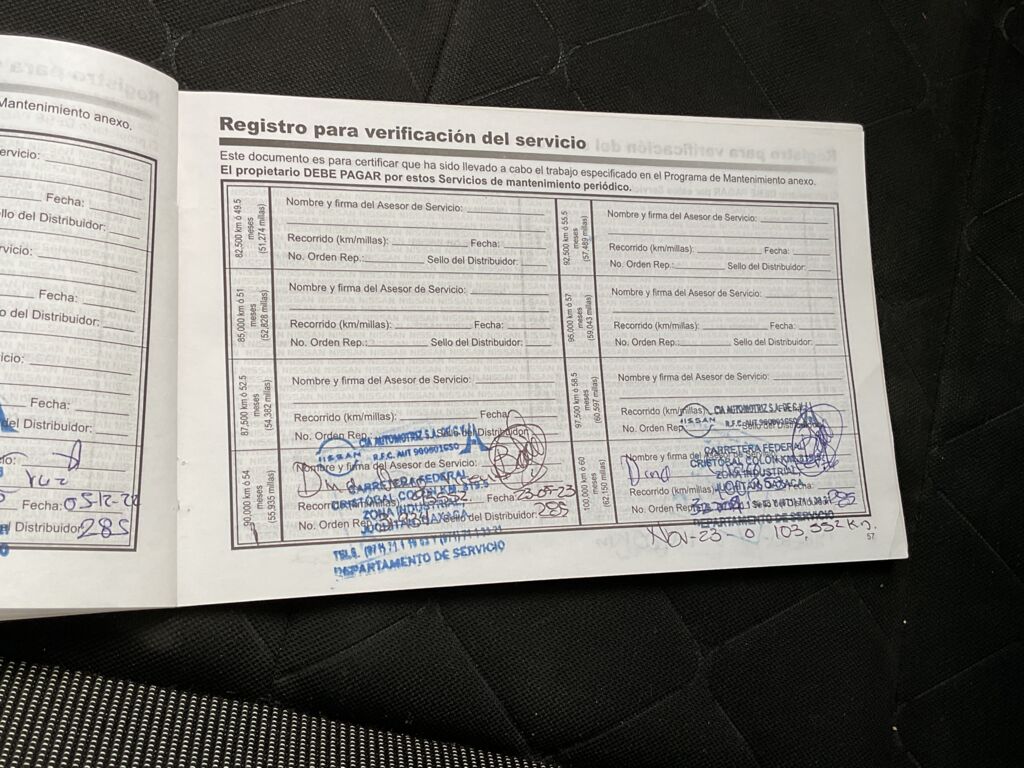 Mantenimiento anexo.
ervicio:
Fecha:
llo del Distribuidor:
rvicio:
Fecha:
o del Distribuidor:
icio:
Fecha:
del Distribuidor:
Fecha: 05-12-22
Distribuidor: 285
Registro para verificación del servicio
Este documento es para certificar que ha sido llevado a cabo el trabajo especificado en el Programa de Mantenimiento anexo.
El propietario DEBE PAGAR por estos Servicios de mantenimiento periódico.
82,500 km ó 49.5
meses
(51,274 millas)
Nombre y firma del Asesor de Servicio:
Recorrido (km/millas): Fecha:
No. Orden Rep.: Sello del Distribuidor:
85,000 km ó 51
meses
(52,828 millas)
Nombre y firma del Asesor de Servicio:
Recorrido (km/millas): Fecha:
No. Orden Rep.: Sello del Distribuidor:
87,500 km ó 52.5
meses
(54,382 millas)
Nombre y firma del Asesor de Servicio:
Recorrido (km/millas): Fecha
No. Orden Rep.: Sello del Distribuidor
90,000 km ó 54
meses
(55,935 millas)
Nombre y firma del Asesor de Servicio:
Fecha: 23-05-23
No. Orden Rep. Sello del Distribuidor: 285
CIA AUTOMOTRIZ S.A. DE C.V.
NISSAN R.F.C. AUT 900601650
CARRETERA FEDERAL
CRISTOBAL COLON KM.
ZONA INDUSTRIAL
JUCHITAN OAXACA
DEPARTAMENTO DE SERVICIO
92,500 km ó 55.5
meses
(57,489 millas)
Nombre y firma del Asesor de Servicio:
Recorrido (km/millas): Fecha:
No. Orden Rep.: Sello del Distribuidor:
95,000 km ó 57
meses
(59,043 millas)
Nombre y firma del Asesor de Servicio:
Recorrido (km/millas): Fecha:
No. Orden Rep.: Sello del Distribuidor:
97,500 km ó 58.5
meses
(60,597 millas)
Nombre y firma del Asesor de Servicio:
Recorrido (km/millas)
No. Orden Rep
100,000 km ó 60
meses
(62,150 millas)
Nombre y firma del
Recorrido (km/millas)
No. Orden Rep. 285
CIA AUTOMOTRIZ S.A. DE C.V.
NISSAN R.F.C. AUT 900601650
CARRETERA FEDERAL
CRISTOBAL COLON KM.
ZONA INDUSTRIAL
JUCHITAN OAXACA
DEPARTAMENTO DE SERVICIO
Nov-23-0 103,332 Km.
57